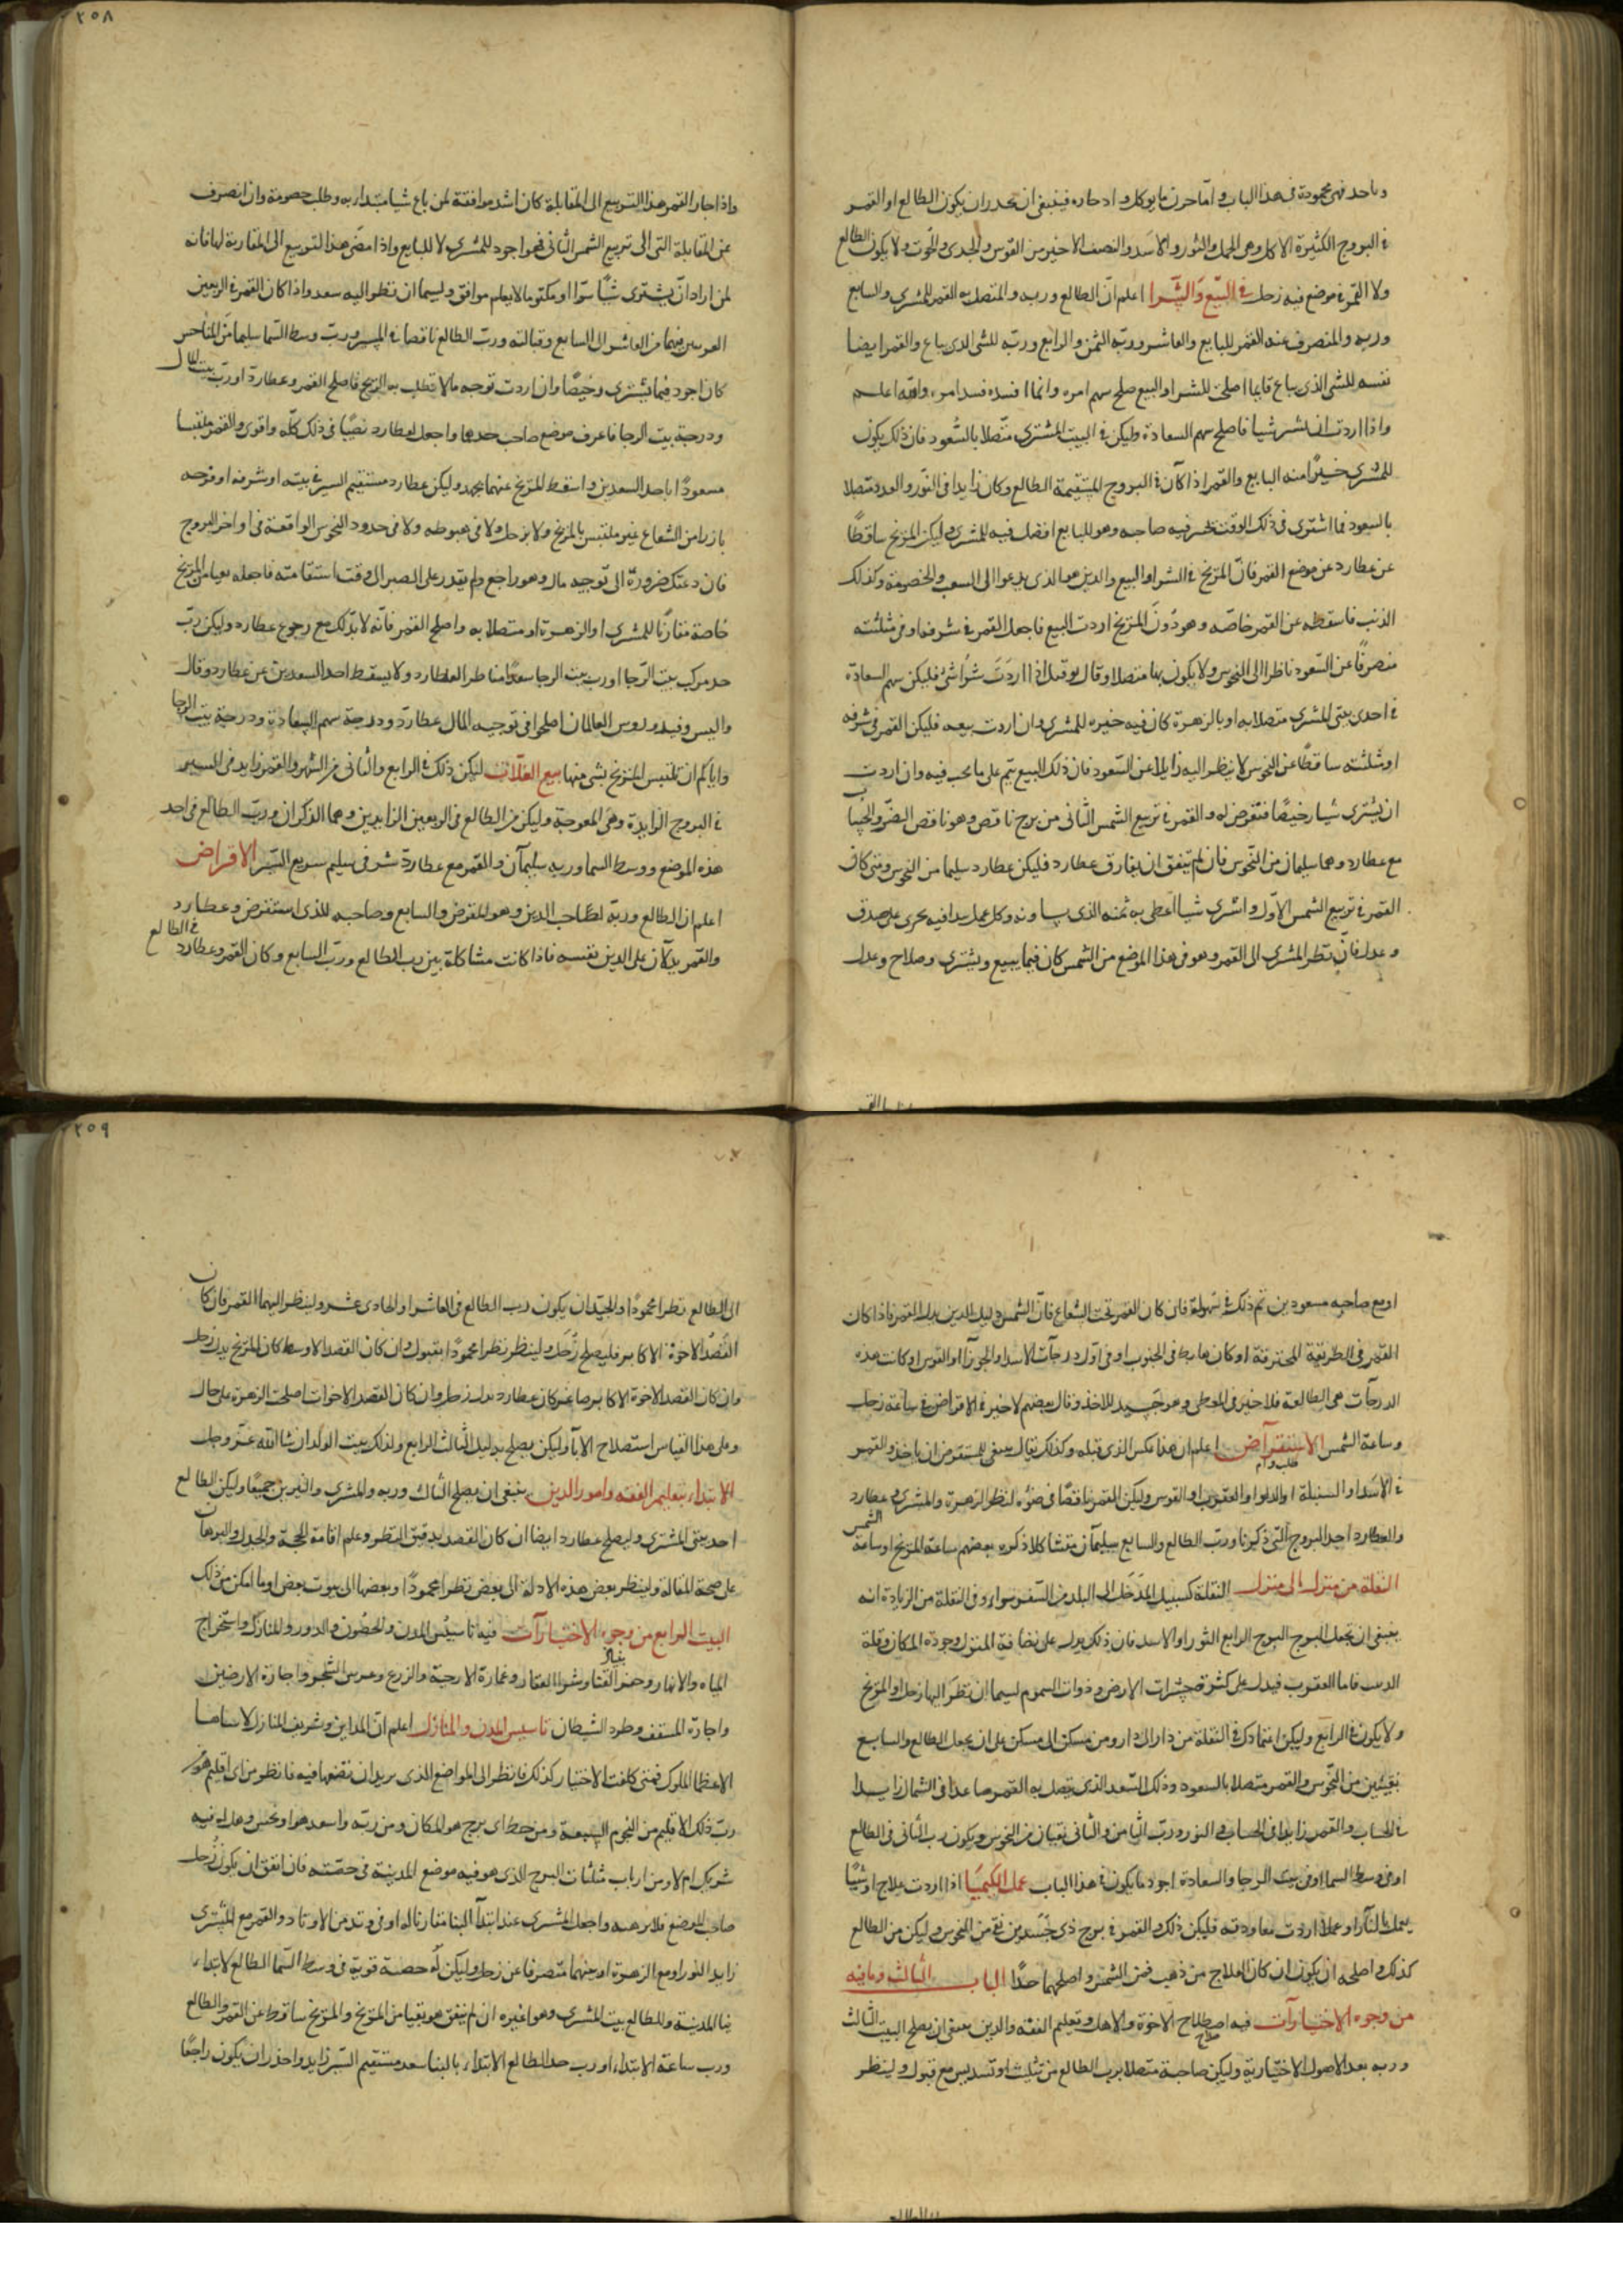 ٢٥٨
فهى محمودة فى هذا الباب و اما خزن ما يوكل و ادخاره فينبغى ان تحذر ان يكون الطالع او القمر
فى البروج الكثيرة الاكل وهى الحمل والثور والاسد والنصف الاخير من القوس والجدى والحوت ولا يكون الطالع
ولا القمر فى موضع فيه زحل فى البيع والشرا اعلم ان الطالع وربه والمتصل به القمر للمشترى والسابع
وربه والمنصرف عنه القمر للبايع والعاشر وربه الثمن والرابع وربه للشى الذى يباع والقمر ايضا
نفسه للشى الذى يباع فايما اصلحت للشرا والبيع صلح سهم امره وانما افسده فسد امره والله اعلم
واذا اردت ان تشتر شيا فاصلح سهم السعادة وليكن فى البيت المشترى متصلا بالسعود فان ذلك يكون
للمشترى خيرا منه البايع والقمر اذا كان فى البروج المستقيمة الطالع وكان زايدا فى النور والعدد متصلا
بالسعود فما اشترى فى ذلك الوقت خسر فيه صاحبه وهو للبايع افضل فيه للمشترى وليكن المريخ ساقطا
عن عطارد عن موضع القمر فان المريخ فى الشرا والبيع والدين هو الذى يدعوا الى الشعب والخصومة وكذلك
الذنب فاسقطه عن القمر خاصه وهو دون المريخ اردت البيع فاجعل القمر فى شرفه او فى مثلثته
منصرفا عن السعود ناظرا الى النحوس ولا يكون بها متصلا وقال اذا اردت شراشى فليكن سهم السعادة
فى احدى بيتى المشترى متصلا به او بالزهرة كان فيه خيره للمشترى وان اردت بيعه فليكن القمر فى شرفه
او مثلثته ساقطا عن النحوس لا ينظر اليه زايلا عن السعود فان ذلك البيع يتم على ما يحب فيه وان اردت
ان يشترى شيا رخيصا فتعرض له والقمر فى تربيع الشمس الثانى من برج ناقص وهو ناقص الضو والحساب
مع عطارد وهما سليمان من النحوس فان لم يتفق ان يفارق عطارد فليكن عطارد سليما من النحوس ومتى كان
القمر فى تربيع الشمس الاول واشترى شيا اعطى به ثمنه الذى يساويه وكل عمل يبدا فيه يجرى على صدق
وعدل فان نظر المشترى الى القمر وهو فى هذا الموضع من الشمس كان فيما يبيع ويشترى وصلاح وعدل
واذا جاز القمر هذا التربيع الى المقابلة كان اشد موافقة لمن باع شيا مبتدا به وطلب خصومة وان انصرف
عن المقابلة التى الى تربيع الشمس الثانى فهو اجود للمشترى لا للبايع واذا مضى هذا التربيع الى المقاربة لها فانه
لمن اراد ان يشترى شيا سرا او مكتوما لا يعلم موافق ولسيما ان نظر اليه سعد واذا كان القمر فى الربعين
من العاشر الى السابع وقبالته ورب الطالع ناقصا فى المسير ورب وسط السما سليما من المناحس
كان اجود فيما يشترى رخيصا وان اردت توجه مالا تطلب به الربح فاصلح القمر وعطارد او رب بيت المال
ودرجة بيت الرجا فاعرف موضع صاحب حدها واجعل لعطارد نصيبا فى ذلك كله واقوى والقمر ملتبسا
مسعودا باحد السعدين واسقط المريخ عنهما بجهد وليكن عطارد مستقيم السير فى بيته او شرفه او فرحه
بارزا من الشعاع غير ملتبس بالمريخ ولا بزحل ولا فى هبوطه ولا فى حدود النحوس الواقعة فى اواخر البروج
فان دعتك ضرورة الى توجيه مال وهو راجع ولم يقدر على الصبر الى وقت استقامته فاجعله نقيا من المريخ
خاصة مقارنا للمشترى او الزهرة او متصلا به واصلح القمر فانه لا بد لك مع رجوع عطارد وليكن رب
حد مركب بيت الرجا او رب بيت الرجا سعدا مناظر العطارد ولا يسقط احد السعدين عن عطارد وقال
واليس وفيدوروس العالمان اصلحوا فى توجيه المال عطارد ودرجة سهم السعادة ودرجة بيت الرجا
واياكم ان تلتبس المريخ بشى منها بيع الغلات ليكن ذلك فى الرابع والثانى من الشهر والقمر زايد فى المسير
فى البروج الزايدة وهى المعوجة وليكن من الطالع فى الربعين الزايدين وهما الذكران ورب الطالع فى احد
هذه المواضع ووسط السما وربه سليمان والقمر مع عطارد شرفى سليم سريع السير الاقراض
اعلم ان الطالع وربه لصاحب الدين وهو المقرض والسابع وصاحبه للذى استقرض وعطارد
والقمر يدلان على الدين نفسه فاذا كانت مشاكلة بين رب الطالع ورب السابع وكان القمر وعطارد فى الطالع
٢٥٩
او مع صاحبه مسعودين تم ذلك فى سهولة فان كان القمر تحت الشعاع فان الشمس دليل الدين بدل القمر فاذا كان
القمر فى الطريقة المحترقة او كان هابط فى الجنوب او فى اول درجات الاسد او الجوزا او القوس او كانت هذه
الدرجات هى الطالعة فلا خير فى المعطى وهو جيد للاخذ وقال بعضهم لا خير فى الاقراض فى ساعة زحل
وساعة الشمس الاستقراض اعلم ان هذا عكس الذى قبله وكذلك يقال ينبغى للمستقرض ان ياخذ والقمر
فى الاسد او السنبلة او الدلو او العقرب او القوس وليكن القمر ناقصا فى ضوئه لنظر الزهرة والمشترى وعطارد
والعطارد احد البروج التى ذكرنا ورب الطالع والسابع سليمان متشاكلا ذكره بعضهم ساعة المريخ او ساعة الشمس
النقلة من منزل الى منزل النقلة كسبيل المدخل الى البلد من السفر سواء وفى النقلة من الزيادة انه
ينبغى ان يجعل البرج البرج الرابع الثور او الاسد فان ذلك يدل على نضافة المنزل وجودة المكان وقلة
فاما العقرب فيدل على كثرة حشرات الارض وذوات السموم لسيما ان نظر اليها زحل او المريخ
ولا يكون فى الرابع وليكن اعتمادك فى النقلة من دار الى دار ومن مسكن الى مسكن على ان يجعل الطالع والسابع
نقيتين من النحوس والقمر متصلا بالسعود وذلك السعد الذى يتصل به القمر صاعدا فى الشمال زايدا
فى الحساب والقمر زايدا فى الحساب فى النور ورب الثامن والثانى نقيان من النحوس ويكون رب الثانى فى الطالع
او فى وسط السما او فى بيت الرجا والسعادة اجود ما يكون فى هذا الباب عمل الكيميا اذا اردت علاج او شيا
يعمل بالنار او عملا اردت معاودته فليكن ذلك والقمر فى برج ذى جسدين نقى من النحوس وليكن من الطالع
كذلك واصلحه ان يكون ان كان العلاج من ذهب فمن الشمس واصلحهما جدا الباب الثالث وما فيه
من وجوه الاختيارات فيه اصطلاح الاخوة والاهل وتعليم الفقه والدين ينبغى ان يصلح البيت الثالث
وربه بعد الاصول الاختيارية وليكن صاحبة متصلا برب الطالع من تثليث او تسديس مع قبول ولينظر
الى الطالع نظرا محمودا والجيد ان يكون رب الطالع فى العاشر او الحادى عشر ولينظر اليهما القمر فان كان
القصد الاخوة الاكابر فليصلح زحل ولينظر نظرا محمودا بقبول وان كان القصد الاوسط كان المريخ بدل زحل
وان كان القصد الاخوة الاكابر صاغر كان عطارد بدل زحل وان كان القصد الاخوات اصلحت الزهرة على حال
وعلى هذا القياس استصلاح الابا وليكن يصلح بدليل الثالث الرابع ولذلك بيت الولد ان شا الله عز وجل
الابتداء بتعليم الفقه وامور الدين ينبغى ان يصلح الثالث وربه والمشترى والنيرين جميعا وليكن الطالع
احد بيتى المشترى وليصلح عطارد ايضا ان كان القصد بدقيق النظر وعلم اقامة الحجة والجدل والبرهان
على صحة المقالة ولينظر بعض هذه الادلة الى بعض نظرا محمودا وبعضها الى بيوت بعض او ما امكن من ذلك
البيت الرابع من وجوه الاختيارات فيه تاسيس المدن والحصون والدور والمنازل واستخراج
المياه والانهار وحفر القنا وشرا العقار وعمارة الارحية والزرع وغرس الشجر واجارة الارضين
واجارة المستغف وطرد الشيطان تاسيس المدن والمنازل اعلم ان المداين وشريف المنازل لاساسا
الاعظما الملوك فمتى كلفت الاختيار كذلك فانظر الى المواضع الذى يريد ان تضعها فيه فانظر من اى اقليم هو
رب ذلك الاقليم من النجوم السبعة ومن حظ اى برج هو المكان ومن ربه واسعد هو او نحس وهل له فيه
شريك ام لا ومن ارباب مثلثات البرج الذى هو فيه موضع المدينة فى حصته فان اتفق ان يكون زحل
صاحب الموضع فلا واجعل المشترى عند ابتدا البنا مقارنا له او فى وتد من الاوتاد والقمر مع المشترى
زايد النور او مع الزهرة او بينهما منصرفا عن زحل وليكن له حصة قوية فى وسط السما الطالع لابتداء
بنا المدينة والطالع بيت المشترى وهو اغيره ان لم يتفق هو نقيا من المريخ والمريخ ساقط عن القمر والطالع
ورب ساعة الابتداء او رب حد الطالع الابتداء بالبنا سعد مستقيم السير زايد واحذر ان يكون راجعا